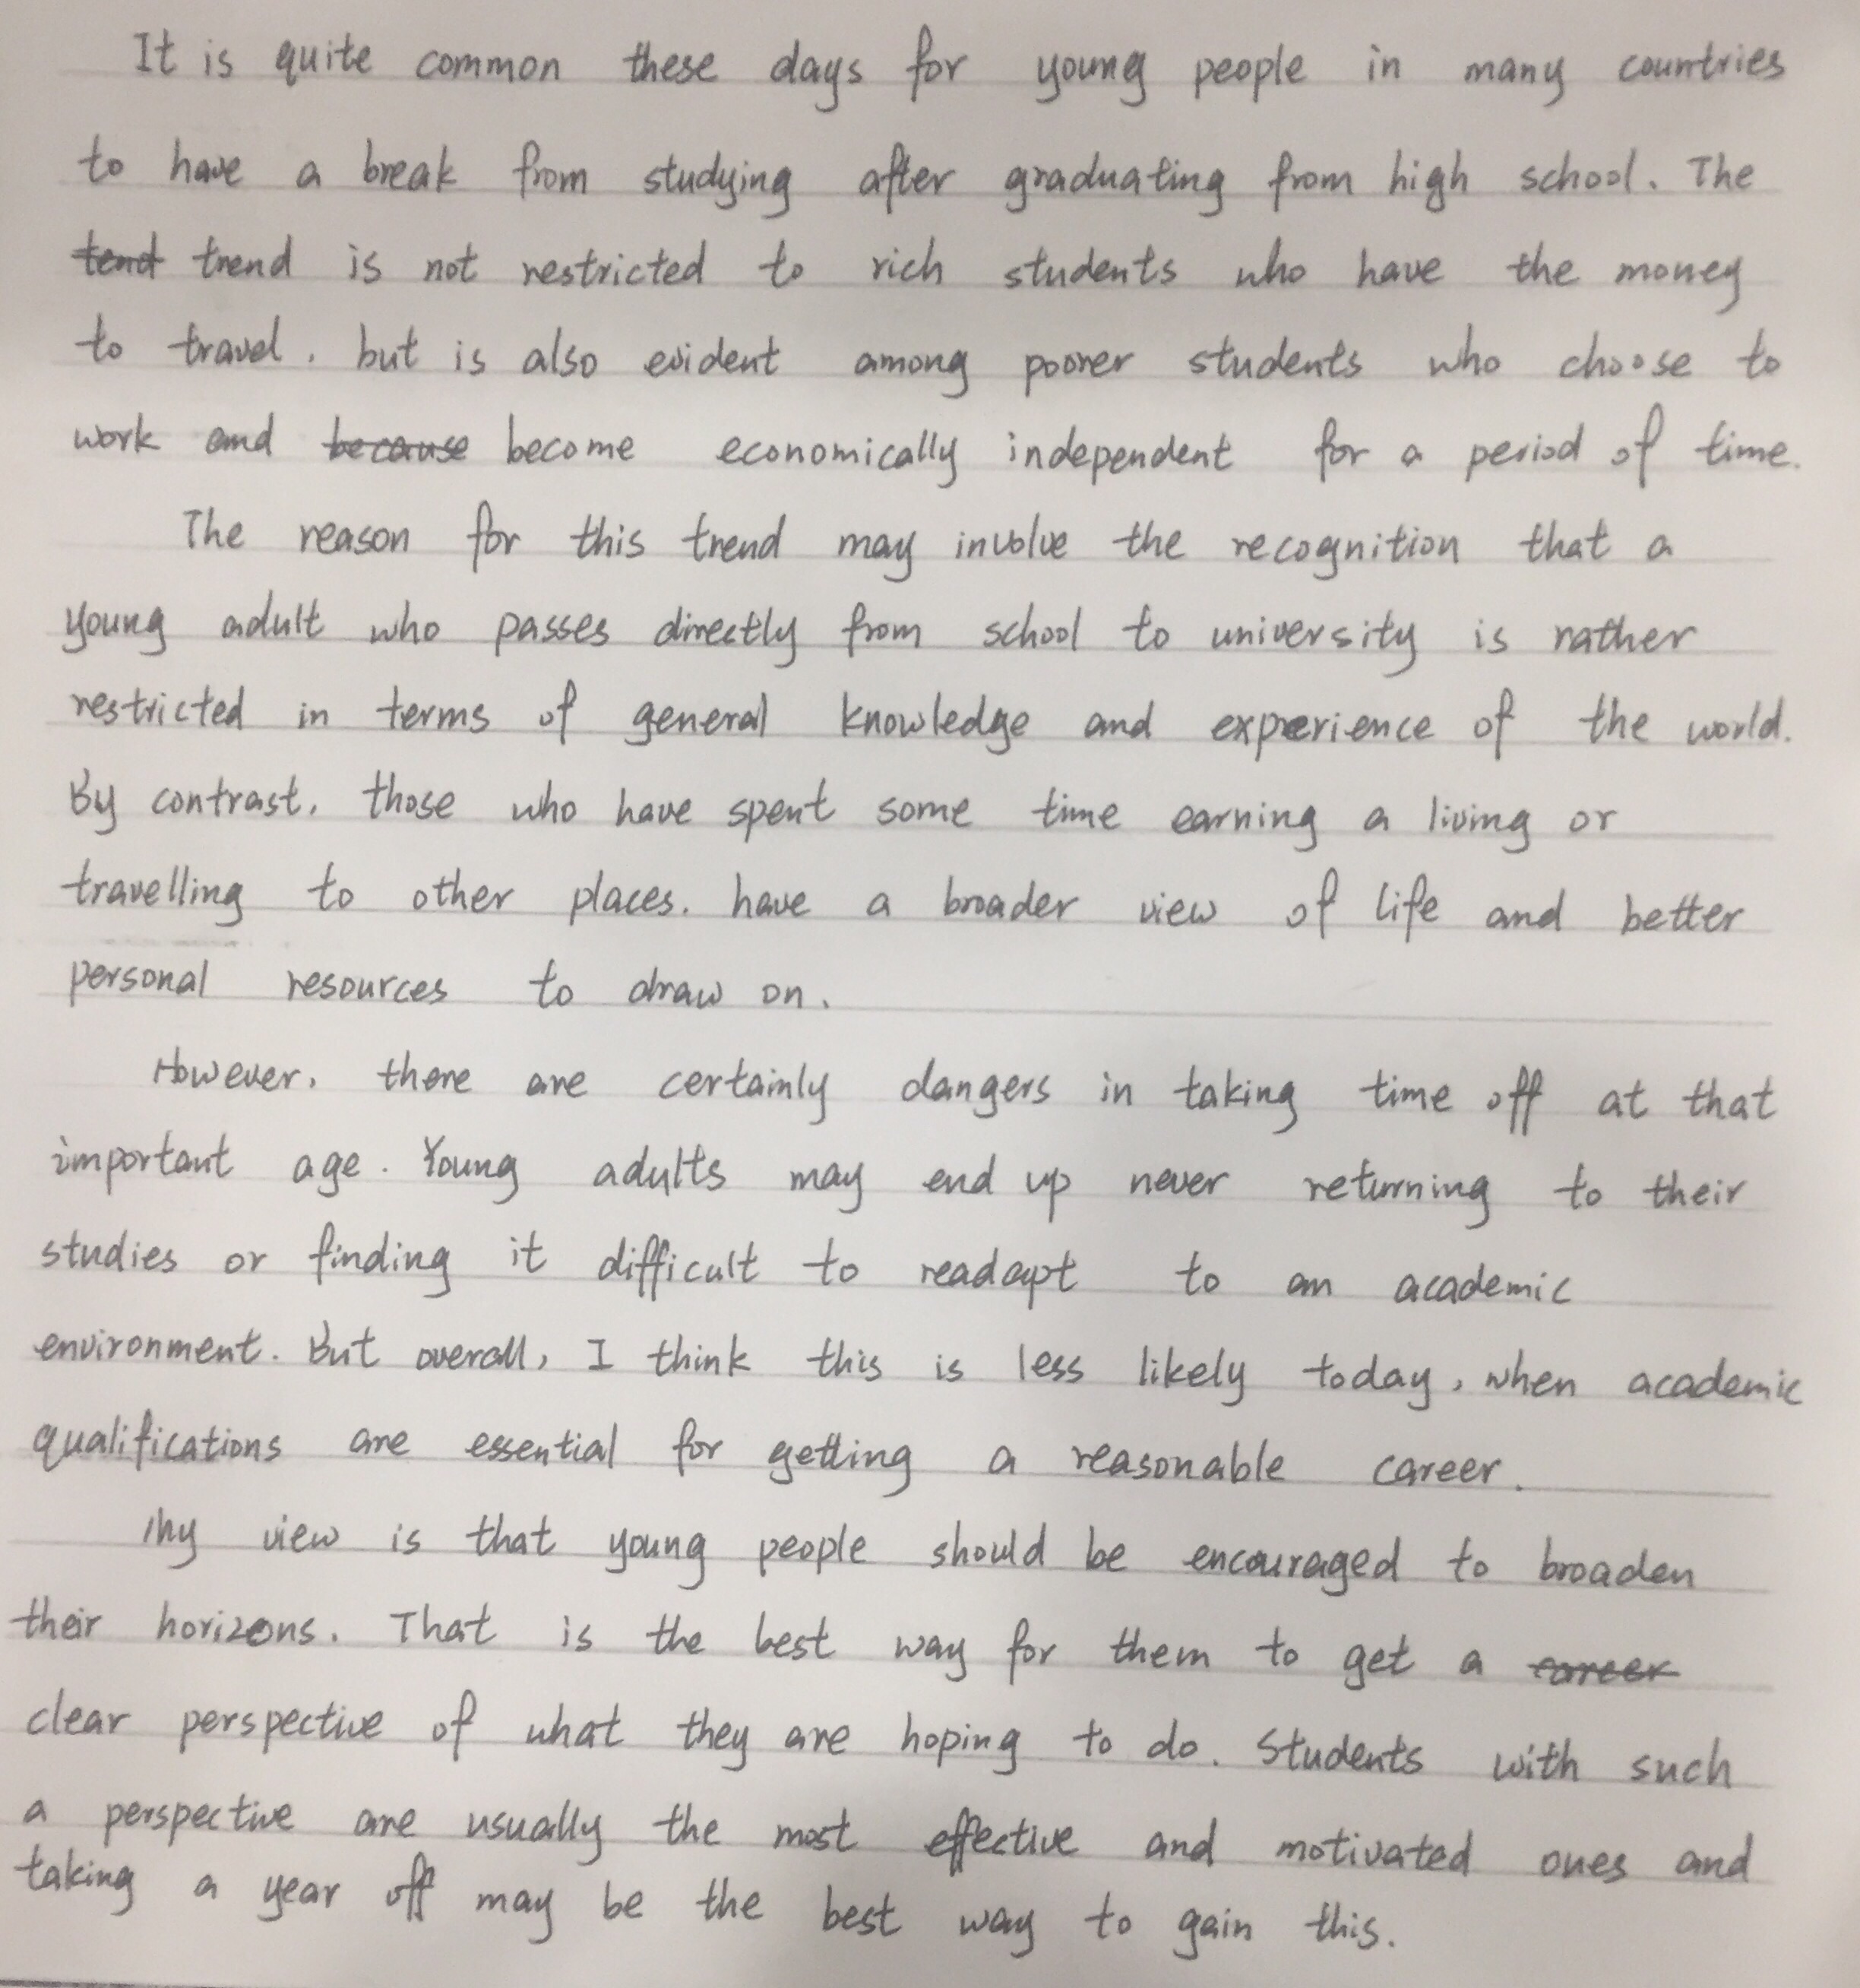 It is quite common these days for young people in many countries
to have a break from studying after graduating from high school. The
tend trend is not restricted to rich students who have the money
to travel, but is also evident among poorer students who choose to
work and because become economically independent for a period of time.
The reason for this trend may involve the recognition that a
young adult who passes directly from school to university is rather
restricted in terms of general knowledge and experience of the world.
By contrast, those who have spent some time earning a living or
travelling to other places, have a broader view of life and better
personal resources to draw on.
However, there are certainly dangers in taking time off at that
important age. Young adults may end up never returning to their
studies or finding it difficult to readapt to an academic
environment. But overall, I think this is less likely today, when academic
qualifications are essential for getting a reasonable career.
My view is that young people should be encouraged to broaden
their horizons. That is the best way for them to get a career
clear perspective of what they are hoping to do. Students with such
a perspective are usually the most effective and motivated ones and
taking a year off may be the best way to gain this.